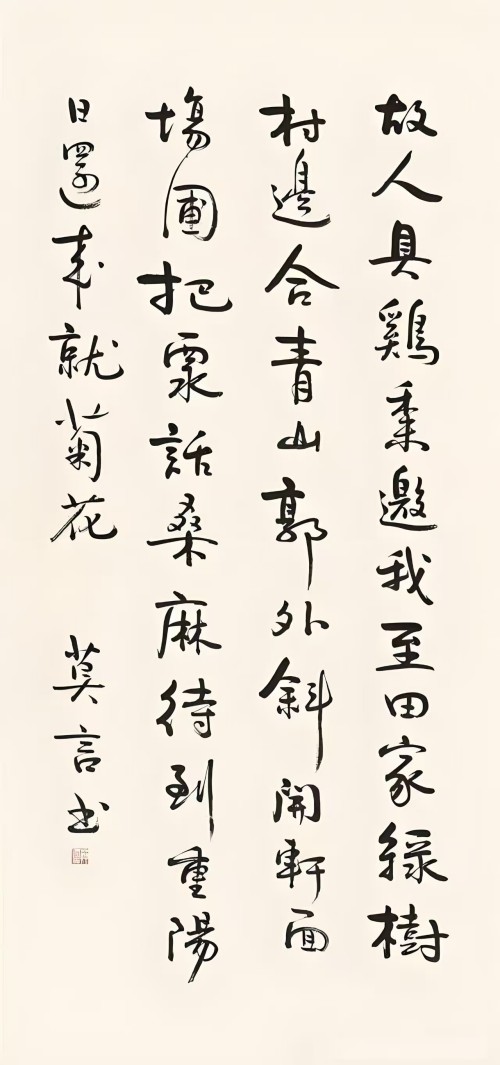 故人具鷄黍邀我至田家綠樹
村邊合青山郭外斜開軒面
場圃把話桑麻待到重陽
日還来就菊花
莫言书